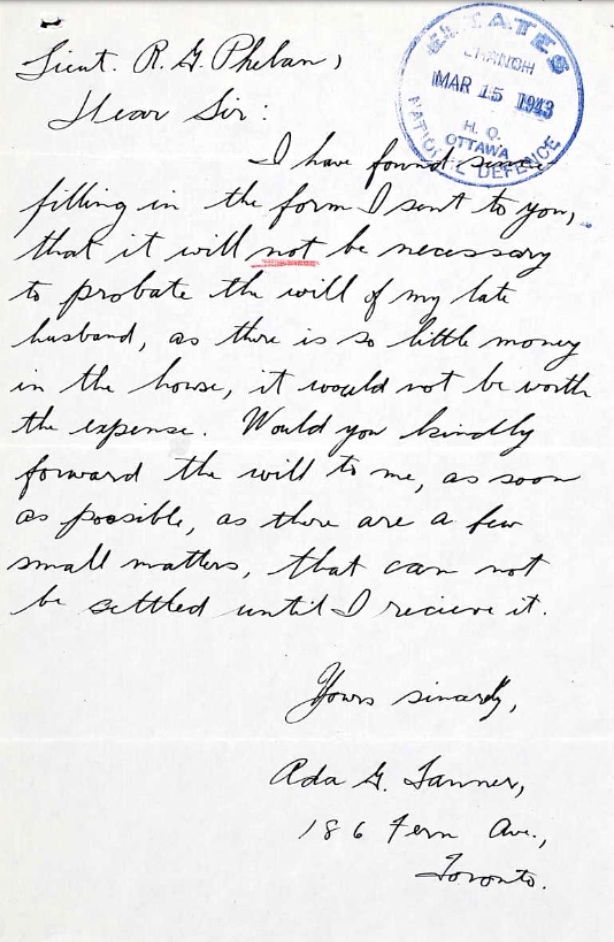 Lieut. R. G. Phelan,
Dear Sir:
I have found since
filling in the form I sent to you,
that it will not be necessary
to probate the will of my late
husband, as there is so little money
in the house, it would not be worth
the expense. Would you kindly
forward the will to me, as soon
as possible, as there are a few
small matters, that can not
be settled until I recieve it.
Yours sincerely,
Ada G. Tanner,
186 Fern Ave.,
Toronto.
ESTATES
BRANCH
MAR 15 1943
H. Q.
OTTAWA
NATIONAL DEFENCE